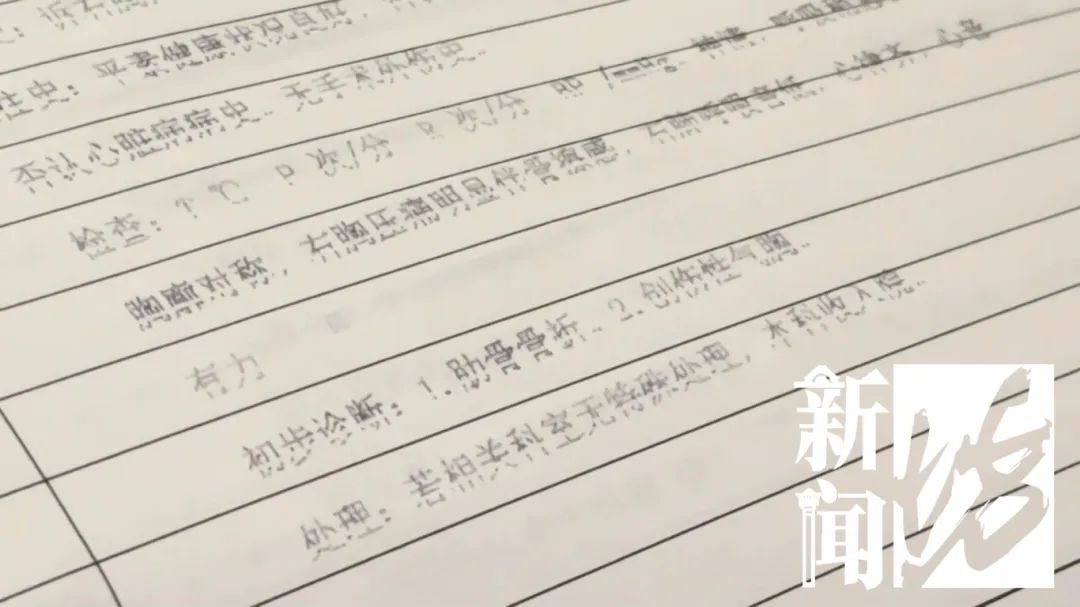 往史：平素健康状况良好，
否认心脏病病史，无手术外伤史，
检查：T ℃ P 次/分 R 次/分 BP /
胸廓对称，右胸压痛明显伴骨擦感，右肺呼吸音低，心律齐，心音
有力
初步诊断：1.肋骨骨折；2.创伤性气胸。
处理：若相关科室无特殊处理，本科收入院。
新闻
坊